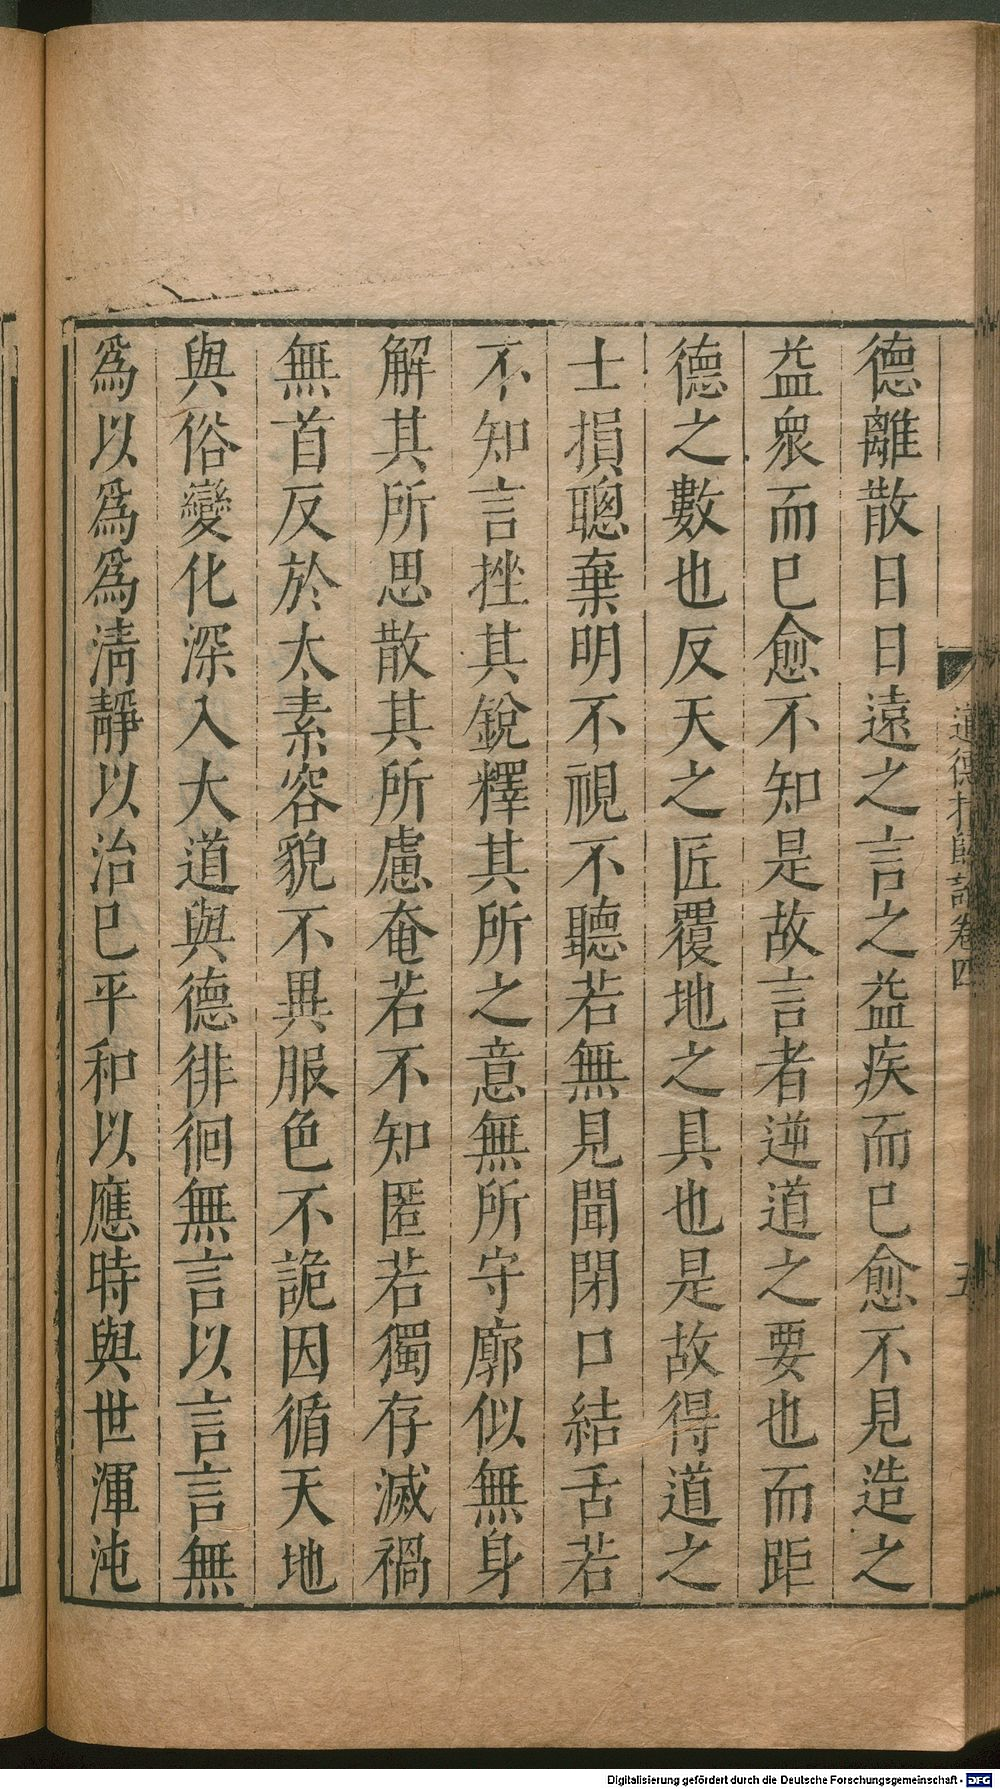 道德指歸論卷四
五
德離散日日遠之言之益疾而已愈不見造之
益衆而已愈不知是故言者逆道之要也而距
德之數也反天之匠覆地之具也是故得道之
士損聰棄明不視不聽若無見聞閉口結舌若
不知言挫其銳釋其所之意無所守廓似無身
解其所思散其所慮奄若不知匿若獨存滅禍
無首反於太素容貌不異服色不詭因循天地
與俗變化深入大道與德徘徊無言以言言無
爲以爲爲淸靜以治已平和以應時與世渾沌
Digitalisierung gefördert durch die Deutsche Forschungsgemeinschaft - DFG